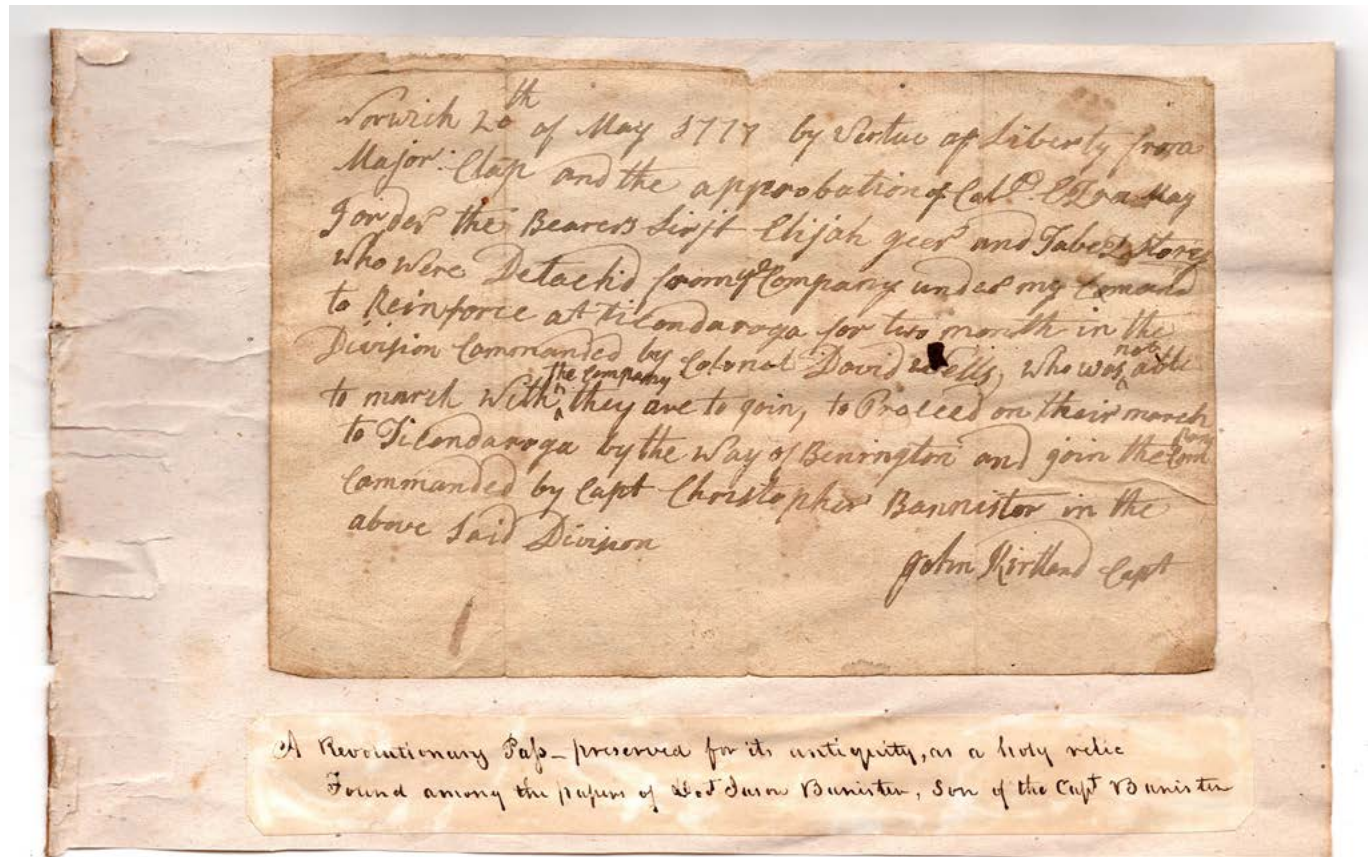 Norwich 20th of May 1777 by Vertue of Liberty from
Major Clap and the approbation of Coll. Ezra May
I order the Bearers Sirjt Elijah geer and Stores
who were Detach'd from ye Company under my Comand
to Reinforce at Ticondaroga for two month in the
Division Commanded by Colonal David Wells, who was not able
to march with the Company they are to join, to Proceed on their march
to Ticondaroga by the Way of Benington and join the Company
Commanded by Capt Christopher Bannister in the
above Said Division
John Kirtland Capt
A Revolutionary Paſs – preserved for its antiquity, as a holy relic
Found among the papers of Jason Banister, Son of the Capt Banister